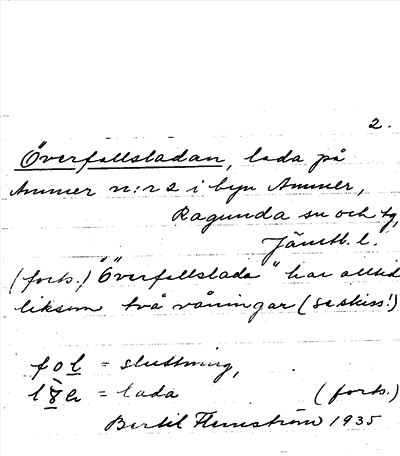 2.
Överfallsladan, lada på
Ammer n:r 2 i byn Ammer,
Ragunda sn och tg,
Jämtl. l.
(forts.) "Överfallslada" har alltid
liksom två våningar (se skiss!)
fol = sluttning,
= lada (forts.)
Bertil Flemström 1935